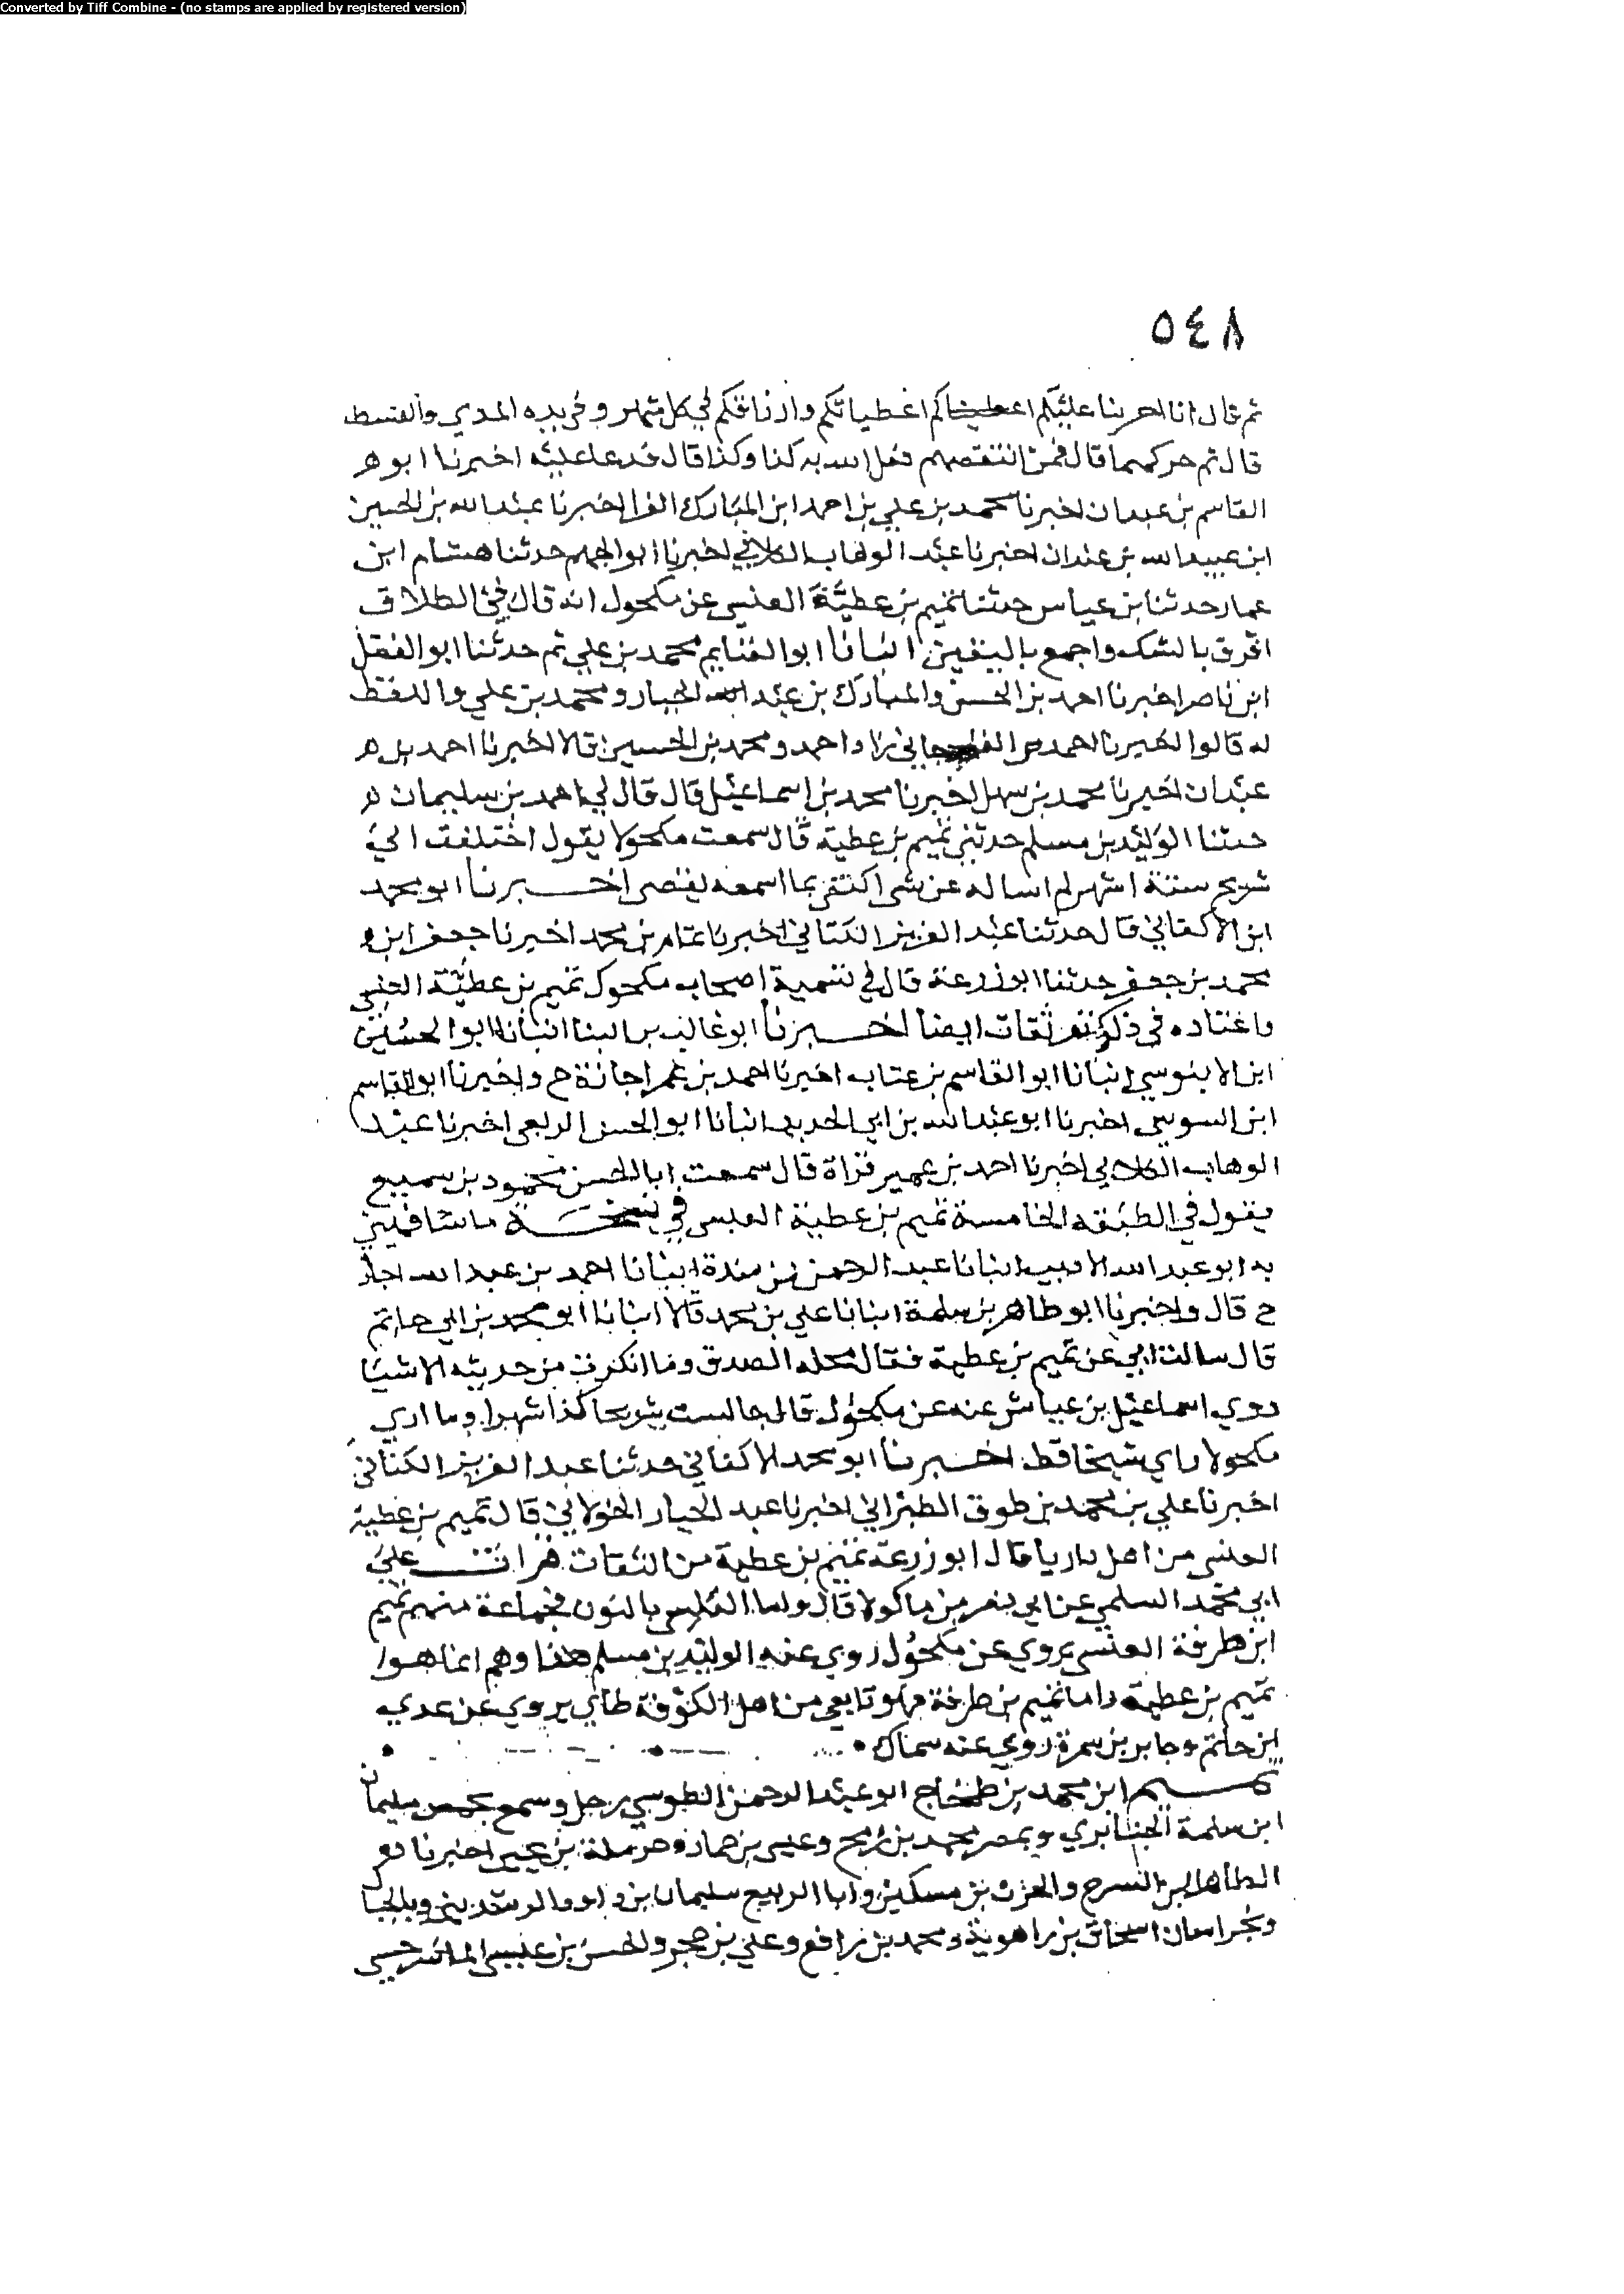 Converted by Tiff Combine - (no stamps are applied by registered version)
٥٤٨
ثم قال انا اجرينا عليكم اعطياتكم وارزاقكم في كل شهر وفي يده المدي والقسط
قال ثم حركهما قال فمن انتقصهم فعل الله به كذا وكذا قال فدعا عليه اخبرنا ابو
القاسم بن عبدان اخبرنا محمد بن علي بن احمد ابن المبارك الفرا اخبرنا عبد الله بن الحسين
ابن عبيد الله بن عبدان اخبرنا عبد الوهاب الكلابي اخبرنا ابو الجهم حدثنا هشام ابن
عمار حدثنا ابن عياس حدثنا تميم بن عطية العنسي عن مكحول انه قال في الطلاق
افرق بالشك واجمع باليقين انبانا ابو الغنايم محمد بن علي ثم حدثنا ابو الفضل
ابن ناصر اخبرنا احمد بن الحسن والمبارك بن عبد الجبار ومحمد بن علي واللفظ
له قالوا اخبرنا احمد زاد احمد ومحمد بن الحسين قالا اخبرنا احمد بن
عبدان اخبرنا محمد بن سهل اخبرنا محمد بن اسماعيل قال قال لي احمد بن سليمان
حدثنا الوليد بن مسلم حدثني تميم بن عطية قال سمعت مكحولا يقول اختلفت الي
شريح ستة اشهر لم اساله عن شي اكتفي بما اسمعه يقضي اخبرنا ابو محمد
ابن الاكفاني قال حدثنا عبد العزيز الكتاني اخبرنا تمام بن محمد اخبرنا جعفر ابن
محمد بن جعفر حدثنا ابو زرعة قال في تسمية اصحاب مكحول تميم بن عطية العنسي
واعتاده في ذكر نفر ثقات ايضا اخبرنا ابو غالب بن البنا انبانا ابو الحسين
ابن الابنوسي انبانا ابو القاسم بن عتاب اخبرنا احمد بن عمر اجازة ح واخبرنا ابو القاسم
ابن السوسي اخبرنا ابو عبد الله بن ابي الحديد انبانا ابو الحسن الربعي اخبرنا عبد
الوهاب الكلابي اخبرنا احمد بن عمير قراة قال سمعت ابا الحسن محمود بن سميع
يقول في الطبقه الخامسة تميم بن عطية العبسي في نسخة ما شافهني
به ابو عبد الله الاديب انبانا عبد الرحمن بن مندة انبانا احمد بن عبد الله اجاز
ح قال واخبرنا ابو طاهر بن سلمة انبانا علي بن محمد قالا انبانا ابو محمد بن ابي حاتم
قال سالت ابي عن تميم بن عطية فقال محله الصدق وما انكرت من حديثه الا شيا
روي اسماعيل بن عياش عنه عن مكحول قال جالست شريحا كذا شهرا وما اري
مكحولا راي شيخا قط اخبرنا ابو محمد الاكفاني حدثنا عبد العزيز الكتاني
اخبرنا علي بن محمد بن طوق الطبراني اخبرنا عبد الجبار الخولاني قال تميم بن عطية
العنسي من اهل داريا قال ابو زرعة تميم بن عطية من الثقات قرات علي
ابي محمد السلمي عن ابي نصر بن ماكولا قال واما العنسي بالنون فجماعة منهم تميم
ابن طرفة العنسي يروي عن مكحول روي عنه الوليد بن مسلم هذا وهم انما هو
تميم بن عطية واما تميم بن طرفة فهو تابعي من اهل الكوفة طاي يروي عن عدي
بن حاتم وجابر بن سمرة روي عنه سماك
تميم ابن محمد بن طمغاج ابو عبد الرحمن الطوسي رحل وسمع بحمص سليمان
ابن سلمة الخبايري وبمصر محمد بن رمح وعيسى بن حماد وحرملة بن يحيى
الطاهر بن السرح والحرث بن مسكين وابا الربيع سليمان بن داود الرشديني وبالجبا
وبخراسان اسحاق بن راهوية ومحمد بن رافع وعلي بن حجر والحسن بن عيسى الماسرجسي